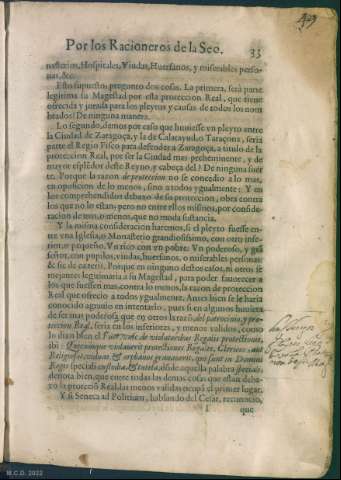 Por los Racioneros de la Seo. 33
nasterios, Hospitales, Viudas, Huerfanos, y miserables perso-
nas, &c.
Esto supuesto, pregunto dos cosas. La primera, será parte
legitima su Magestad por esta proteccion Real, que tiene
ofrecida y jurada para los pleytos y causas de todos los nom
brados? De ninguna manera.
Lo segundo, demos por caso que huuiesse vn pleyto entre
la Ciudad de Zaragoça, y la de Calatayud, o Taraçona, seria
parte el Regio Fisco para defender a Zaragoça, a titulo de la
proteccion Real, por ser la Ciudad mas preheminente, y de
mayor esplēdor deste Reyno, y cabeça del? De ninguna suer
te. Porque la razon de proteccion no se concedio a lo mas,
en oposicion de lo menos, sino a todos ygualmente: Y en
los comprehendidos debaxo de su proteccion, obra contra
los que no lo estan; pero no entre estos mismos, por conside-
racion de mas, o menos, que no muda sustancia.
Y la misma consideracion haremos, si el pleyto fuesse en-
tre vna Iglesia, o Monasterio grandiosissimo, con otro infe-
rior, o pequeño. Vn rico con vn pobre: Vn poderoso, y grā
señor, con pupilos, viudas, huerfanos, o miserables personas
& sic de cæteris. Porque en ninguno destos casos, ni otros se
mejantes legitimaria a su Magestad, para poder fauorecer a
los que fuessen mas, contra lo menos, la razon de proteccion
Real que ofrecio a todos ygualmente. Antes bien se le haria
conocido agrauio en intentarlo, pues si en algunos huuiera
de ser mas poderosa que en otros la razō del patrocinio, y pro-
teccion Real, seria en los inferiores, y menos validos, como
lo dizen
ibi: Quicumque
Religiosi, viduæ, & orphani
Regis speciali custodia, & tutela, dōde aquella palabra
denota bien, que entre todas las demas cosas que estan deba-
xo la proteciō Real, las menos validas ocupā el primer lugar.
Y si Seneca ad Polibium, hablando del Cesar,
I que
M.C.D. 2022